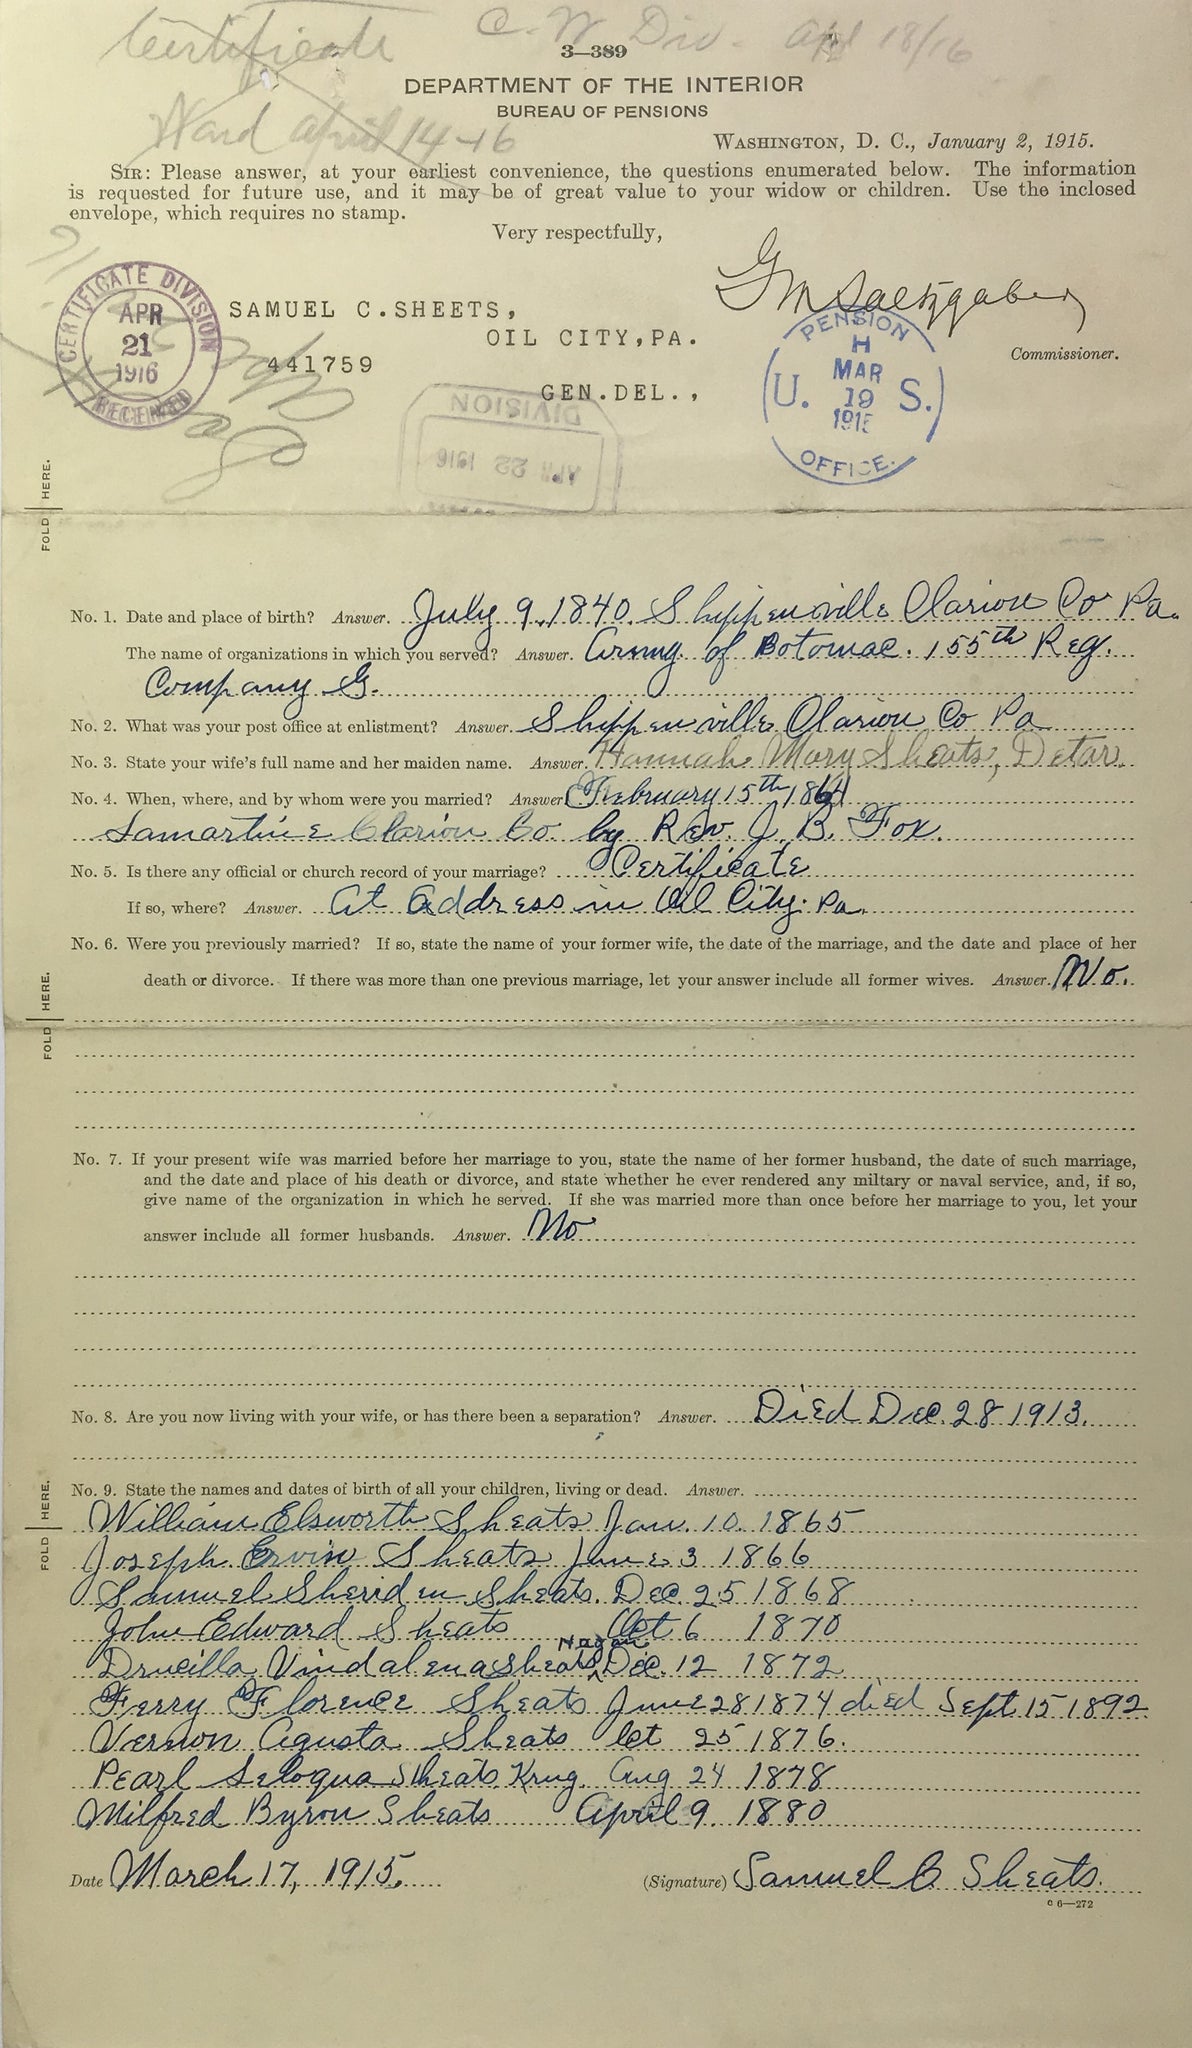 Certificate C. W Div. Apl 18/16
3—389
DEPARTMENT OF THE INTERIOR
BUREAU OF PENSIONS
Ward april 14-16
WASHINGTON, D. C., January 2, 1915.
SIR: Please answer, at your earliest convenience, the questions enumerated below. The information
is requested for future use, and it may be of great value to your widow or children. Use the inclosed
envelope, which requires no stamp.
Very respectfully,
G M Saltzgaber
Commissioner.
CERTIFICATE DIVISION
APR
21
1916
RECEIVED
SAMUEL C. SHEETS,
OIL CITY, PA.
441759
GEN. DEL.,
PENSION
H
MAR
U. 19 S.
1915
OFFICE.
DIVISION
APR 22 1916
FOLD HERE.
No. 1. Date and place of birth? Answer. July 9, 1840. Shippenville Clarion Co Pa.
The name of organizations in which you served? Answer. Army of Botomac. 155th Reg.
Company G.
No. 2. What was your post office at enlistment? Answer. Shippenville Clarion Co Pa
No. 3. State your wife's full name and her maiden name. Answer. Hannah Mary Sheats, Detar.
No. 4. When, where, and by whom were you married? Answer. February 15th 1864
Lamartine Clarion Co. by Rev. J. B. Fox.
No. 5. Is there any official or church record of your marriage? Certificate
If so, where? Answer. At Address in Oil City. Pa.
No. 6. Were you previously married? If so, state the name of your former wife, the date of the marriage, and the date and place of her
death or divorce. If there was more than one previous marriage, let your answer include all former wives. Answer. No.
FOLD HERE.
No. 7. If your present wife was married before her marriage to you, state the name of her former husband, the date of such marriage,
and the date and place of his death or divorce, and state whether he ever rendered any miltary or naval service, and, if so,
give name of the organization in which he served. If she was married more than once before her marriage to you, let your
answer include all former husbands. Answer. No
No. 8. Are you now living with your wife, or has there been a separation? Answer. Died Dec. 28 1913.
No. 9. State the names and dates of birth of all your children, living or dead. Answer.
FOLD HERE.
William Elsworth Sheats Jan. 10. 1865
Joseph Ervin Sheats June 3 1866
Samuel Sheriden Sheats. Dec. 25 1868
John Edward Sheats Oct 6 1870
Drucilla Vindalena Sheats Hagan Dec. 12 1872
Ferry Florence Sheats June 28 1874 died Sept. 15 1892.
Vernon Agusta Sheats Oct 25 1876.
Pearl Sheats Krug. Aug 24 1878
Milfred Byron Sheats April 9. 1880
Date March 17, 1915. (Signature) Samuel C Sheats.
C 6—272